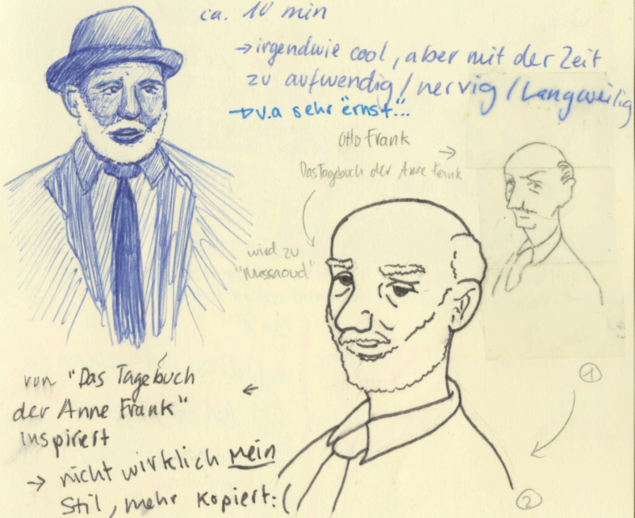 ca. 10 min
→ irgendwie cool, aber mit der Zeit
zu aufwendig / nervig / langweilig
→ v.a sehr "ernst"...
Otto Frank →
Das Tagebuch der Anne Frank
wird zu
"Massaoud"
von "Das Tagebuch
der Anne Frank" ←
inspiriert
→ nicht wirklich mein
Stil, mehr kopiert :(
1
2